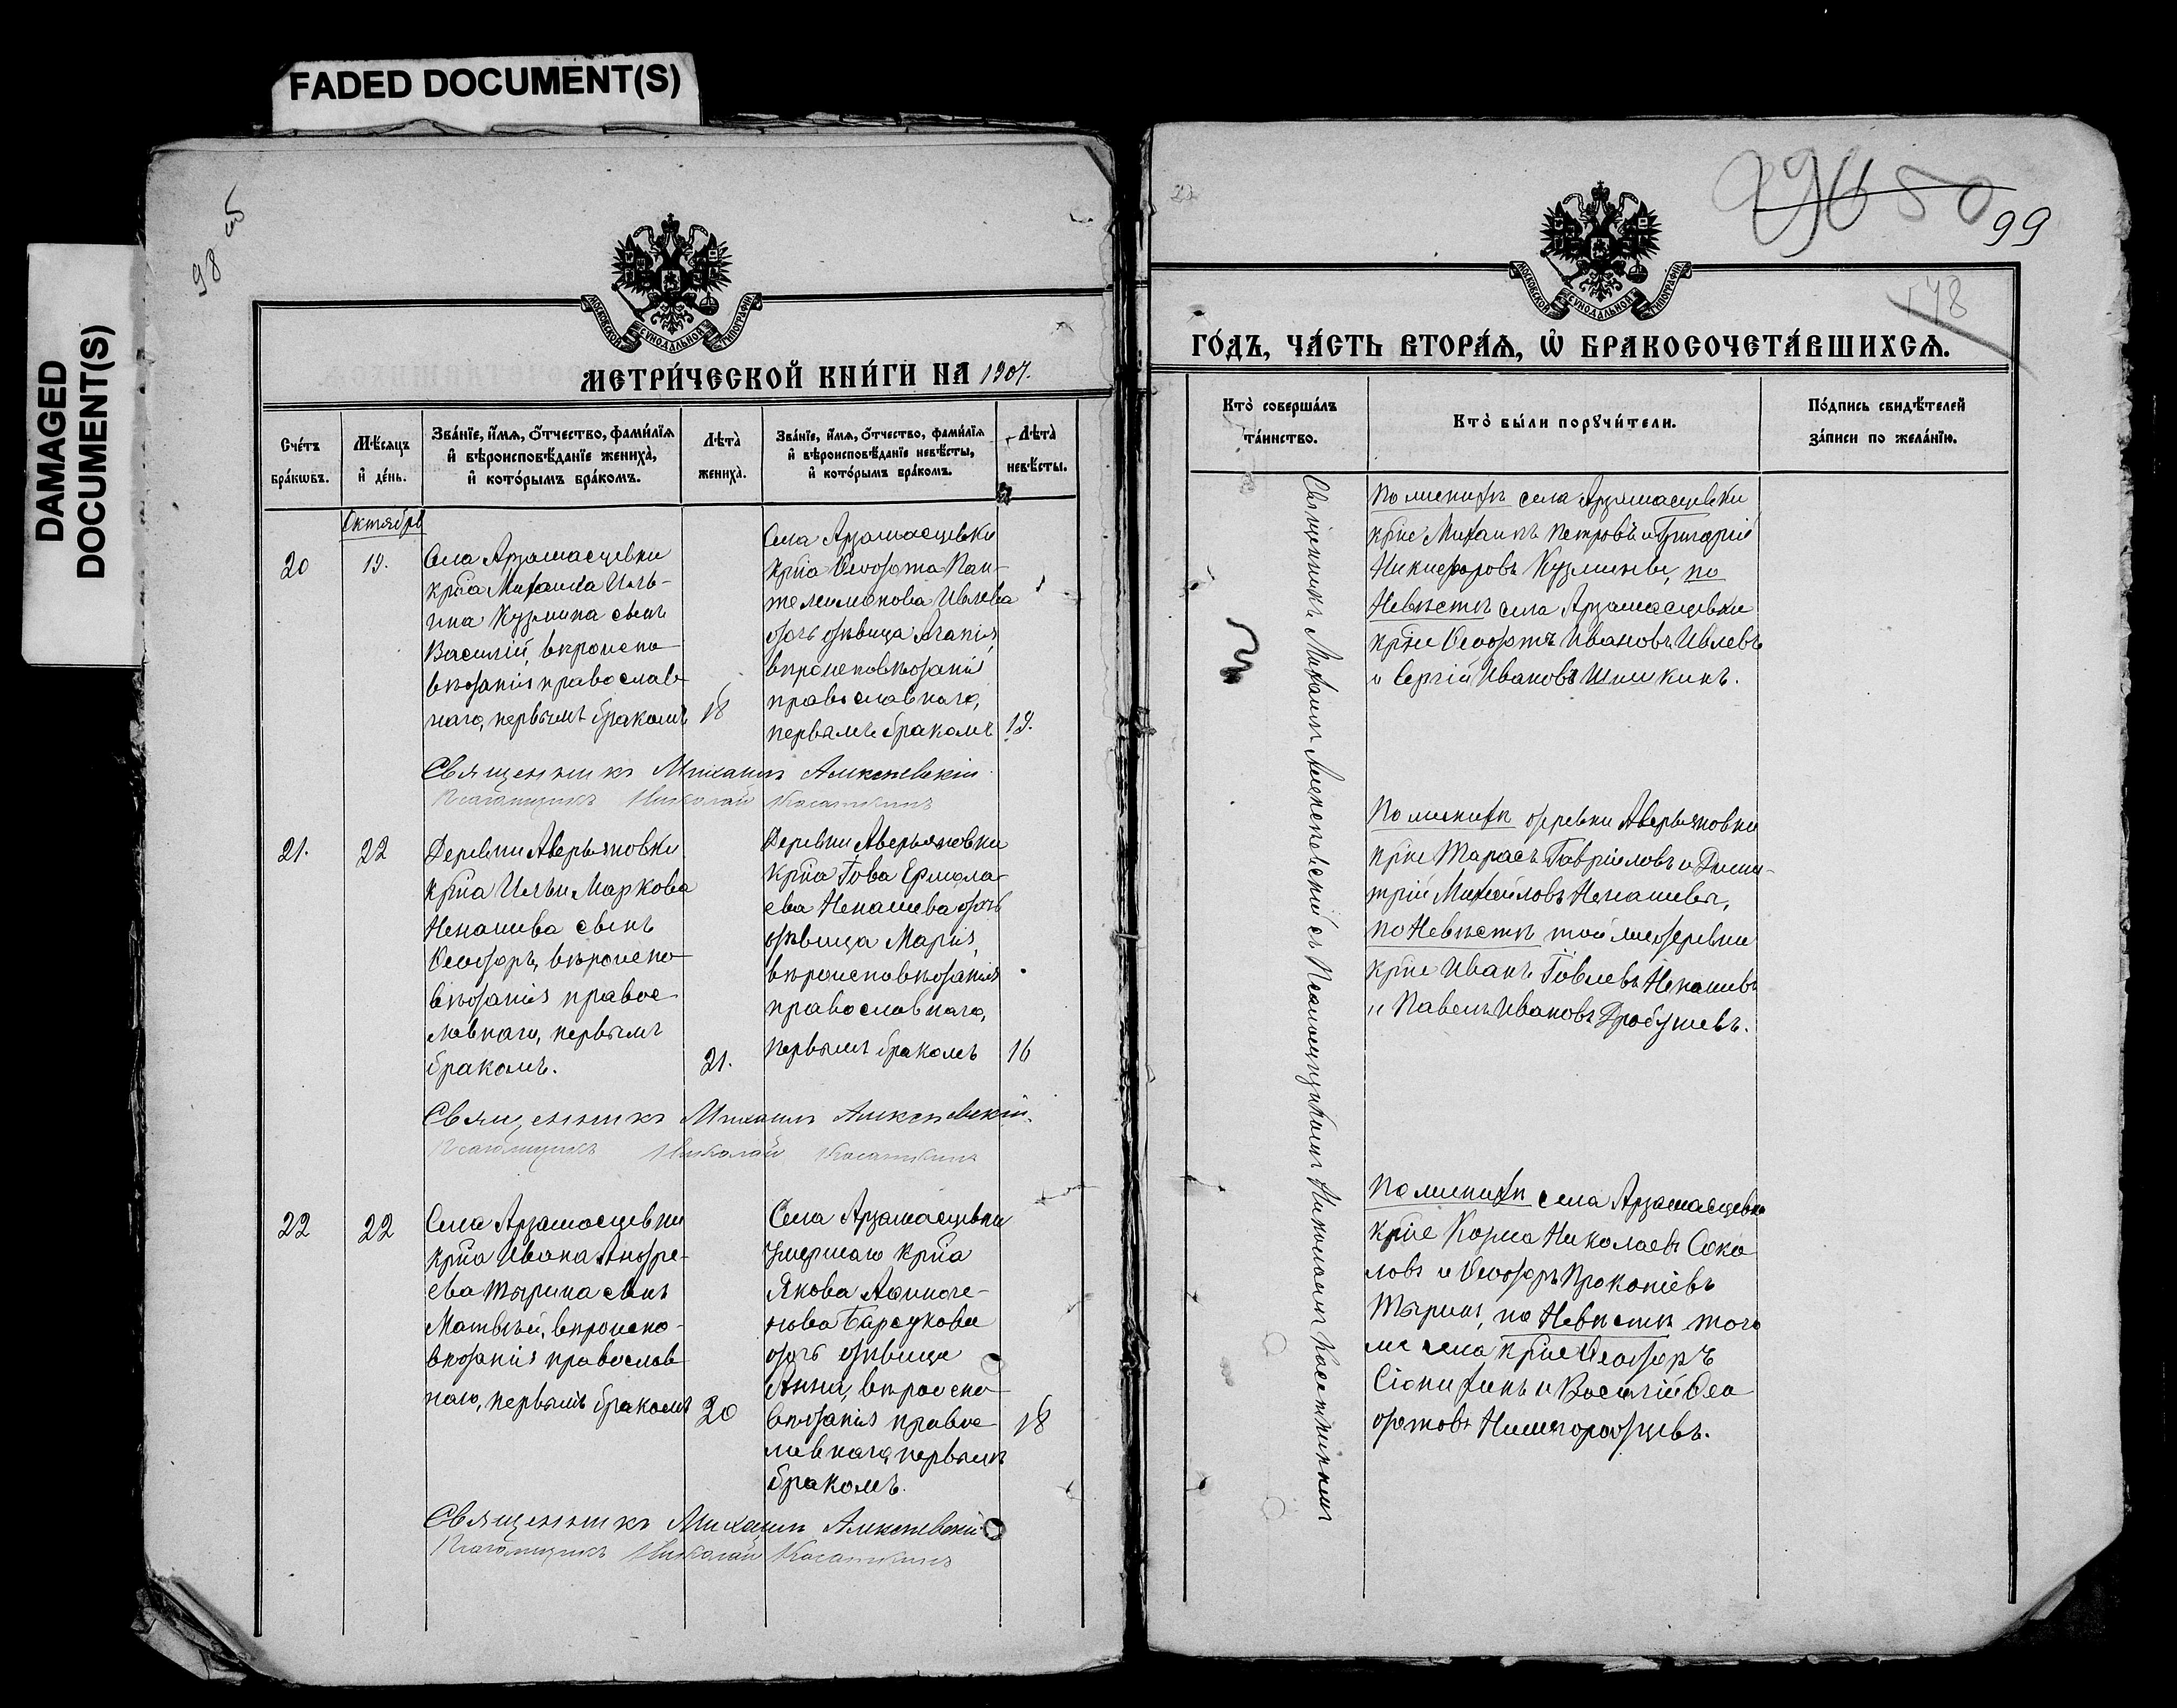 FADED DOCUMENT(S)
DAMAGED
DOCUMENT(S)
98 об
МОСКОВСКОЙ СѴНОДАЛЬНОЙ ТИПОГРАФІИ
МЕТРИ́ЧЕСКОЙ КНИ́ГИ НА 1907.
Сче́тъ бра́кѡвъ.
Мѣ́сяцъ и҆ де́нь.
Зва́нїе, и҆́мѧ, ѻ҆́тчество, фами́лїѧ и҆ вѣроисповѣ́данїе жениха̀, и҆ кото́рымъ бра́комъ.
Лѣта̀ жениха̀.
Зва́нїе, и҆́мѧ, ѻ҆́тчество, фами́лїѧ и҆ вѣроисповѣ́данїе невѣ́сты, и҆ кото́рымъ бра́комъ.
Лѣта̀ невѣ́сты.
Октябрь
20
19.
Села Арзамасцевки
кр҃на Михаила Иль-
ина Кузмина сынъ
Василій, вѣроиспо-
вѣданія православ-
наго, первымъ бракомъ
18
Села Арзамасцевки
кр҃на Ѳеодота Пан-
телимонова Ивлева
дочь дѣвица Агапія,
вѣроисповѣданія
православнаго,
первымъ бракомъ
19.
Священникъ Михаилъ Алексѣевскій
Псаломщикъ Николай Касаткинъ
21.
22
Деревни Аверьяновки
кр҃на Ильи Маркова
Ненашева сынъ
Ѳеодоръ, вѣроиспо-
вѣданія правос-
лавнаго, первымъ
бракомъ.
21.
Деревни Аверьяновки
кр҃на Іова Ермола-
ева Ненашева дочь
дѣвица Марія,
вѣроисповѣданія
православнаго,
первымъ бракомъ
16
Священникъ Михаилъ Алексѣевскій.
Псаломщикъ Николай Касаткинъ
22
22
Села Арзамасцевки
кр҃на Ивана Андре-
ева Тырина сынъ
Матвѣй, вѣроиспо-
вѣданія православ-
наго, первымъ бракомъ
20
Села Арзамасцевки
умершаго кр҃на
Якова Афиноге-
нова Барсукова
дочь дѣвица
Анна, вѣроиспо-
вѣданія правос-
лавнаго, первымъ
бракомъ.
18
Священникъ Михаилъ Алексѣевскій
Псаломщикъ Николай Касаткинъ
99
148
МОСКОВСКОЙ СѴНОДАЛЬНОЙ ТИПОГРАФІИ
ГО́ДЪ, ЧА́СТЬ ВТОРА́Ѧ, Ѡ҆ БРАКОСОЧЕТА́ВШИХСѦ.
Кто̀ соверша́лъ та́инство.
Кто̀ бы́ли порꙋчи́тели.
По́дпись свидѣ́телей за́писи по жела́нїю.
Священникъ Михаилъ Алексѣевскій съ Псаломщикомъ Николаемъ Касаткинымъ
По женихѣ села Арзамасцевки
кр҃не Михаилъ Петровъ и Григорій
Никифоровъ Кузмины, по
Невѣстѣ села Арзамасцевки
кр҃не Ѳеодотъ Ивановъ Ивлевъ
и Сергій Ивановъ Шишкинъ.
По женихѣ деревни Аверьяновки
кр҃не Тарасъ Гавріиловъ и Дими-
трій Михайловъ Ненашевы,
по Невѣстѣ той же деревни
кр҃не Иванъ Іовлевъ Ненашевъ
и Павелъ Ивановъ Дробушевъ.
По женихѣ села Арзамасцевки
кр҃не Козма Николаевъ Соко
ловъ и Ѳеодоръ Прокопіевъ
Тыринъ, по Невѣстѣ того
же села кр҃не Ѳеодоръ
и Василій Ѳео
дотовъ Нижегородцевъ.